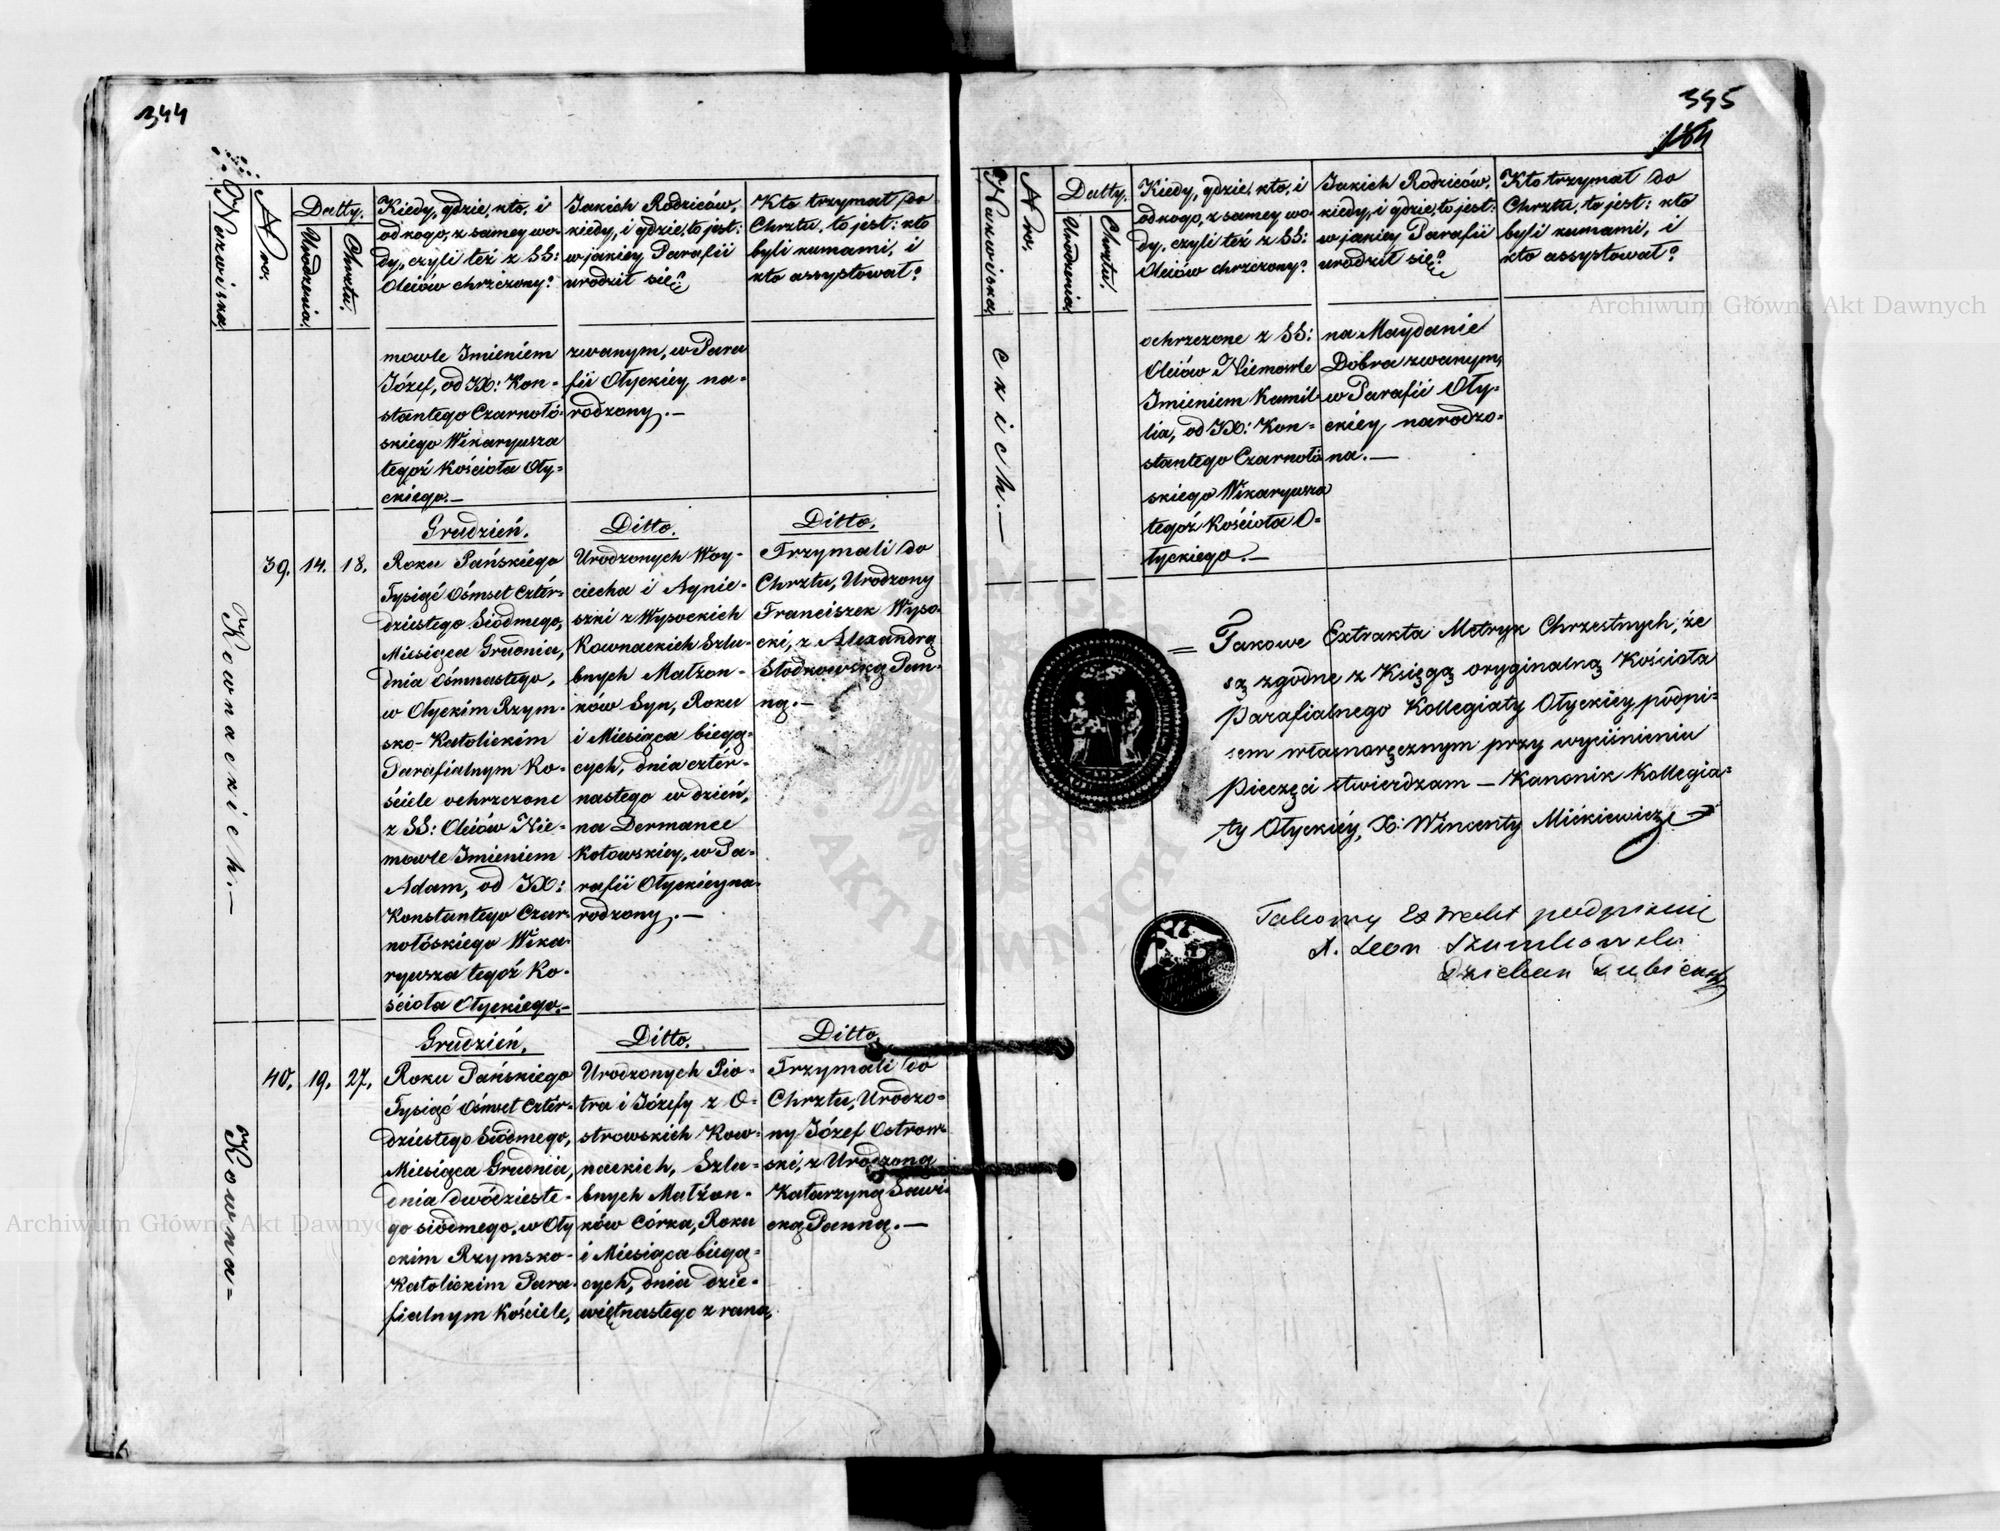 344
Nazwiska.
Nro.
Datty.
Urodzenia.
Chrztu.
Kiedy, gdzie, kto, i
od kogo, z samey wo-
dy, czyli też z SS:
Oleiów chrzczony?
Jakich Rodziców,
kiedy, i gdzie, to jest:
w jakiey Parafii
urodził się?
Kto trzymał do
Chrztu, to jest: kto
byli kumami, i
kto assystował?
mowle Imieniem
Józef, od JX: Kon=
stantego Czarnołó-
skiego Wikaryusza
tegoż Kościoła Oły=
ckiego.—
zwanym, w Para
fii Ołyckiéy na=
rodzony.—
Kownackich.—
39.
14.
18.
Grudzień.
Roku Pańskiego
Tysiąć Ośmset Cztér=
dziestego Siódmego,
Miesiąca Grudnia,
dnia Ośmnastego,
w Ołyckim Rzym=
sko-Katolickim
Parafialnym Ko=
ściele ochrzczone
z SS: Oleiów Nie=
mowle Imieniem
Adam, od JX:
Konstantego Czar-
nołóskiego Wika-
ryusza tegoż Ko-
ścioła Ołyckiego.—
Ditto.
Urodzonych Woy-
ciecha i Agnie-
szki z Wysockich
Kownackich Szlu-
bnych Małżon-
ków Syn, Roku
i Miesiąca bieżą=
cych, dnia cztér=
nastego w dzień,
na Dermance
Kotowskiey, w Pa=
rafii Ołyckiey na-
rodzony.—
Ditto.
Trzymali do
Chrztu, Urodzony
Franciszek Wyso-
cki, z Alexandrą
Słodkowską Pan-
ną.—
Kowna=
40.
19.
27.
Grudzień.
Roku Pańskiego
Tysiąć Ośmset Cztér=
dziestego Siódmego,
Miesiąca Grudnia,
dnia dwódzieste-
go siódmego, w Oły
ckim Rzymsko-
Katolickim Para-
fialnym Kościele,
Ditto.
Urodzonych Pio-
tra i Józefy z O-
strowskich Kow-
nackich, Szlu-
bnych Małżon-
ków Córka, Roku
i Miesiąca bieżą=
cych, dnia dzie-
więtnastego z rana,
Ditto.
Trzymali do
Chrztu, Urodzo=
ny Józef Ostrow-
ski, z Urodzoną
Katarzyną Sawi-
cką Panną.—
345
184
Nazwiska.
Nro.
Datty.
Urodzenia.
Chrztu.
Kiedy, gdzie, kto, i
od kogo, z samey wo-
dy, czyli też z SS:
Oleiów chrzczony?
Jakich Rodziców,
kiedy, i gdzie, to jest:
w jakiey Parafii
urodził się?
Kto trzymał do
Chrztu, to jest: kto
byli kumami, i
kto assystował?
czich.—
ochrzczone z SS:
Oleiów Niemowle
Imieniem Kamil-
lia, od JX: Kon=
stantego Czarnołó
skiego Wikaryusza
tegoż Kościoła O=
łyckiego.—
na Maydanie
Dobra zwanym,
w Parafii Oły-
ckiéy narodzo=
na.—
= Takowe Extrakta Metryk Chrzestnych, że
są zgodne z Księgą oryginalną Kościoła
Parafialnego Kollegiaty Ołyckiey podpi=
sem własnoręcznym przy wyciśnieniu
Pieczęci stwierdzam — Kanonik Kollegia=
ty Ołyckiéy, X: Wincenty Mickiewicz
Takowy Extrakt podpisuię
X. Leon Szumkowski
Dziekan Dubieński
Archiwum Główne Akt Dawnych
Archiwum Główne Akt Dawnych
AKT DAWNYCH